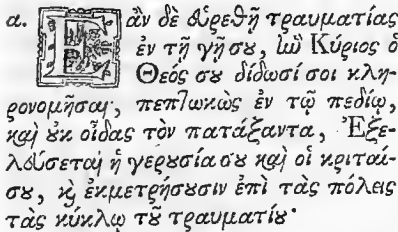 α. Ἐὰν δὲ εὑρεθῇ τραυματίας
ἐν τῇ γῇ σου, ἣν Κύριος ὁ
Θεός σου δίδωσί σοι κλη-
ρονομῆσαι, πεπτωκὼς ἐν τῷ πεδίῳ,
καὶ οὐκ οἶδας τὸν πατάξαντα, Ἐξε-
λεύσεται ἡ γερουσία σου καὶ οἱ κριταί-
σου, καὶ ἐκμετρήσουσιν ἐπὶ τὰς πόλεις
τὰς κύκλῳ τοῦ τραυματίου·